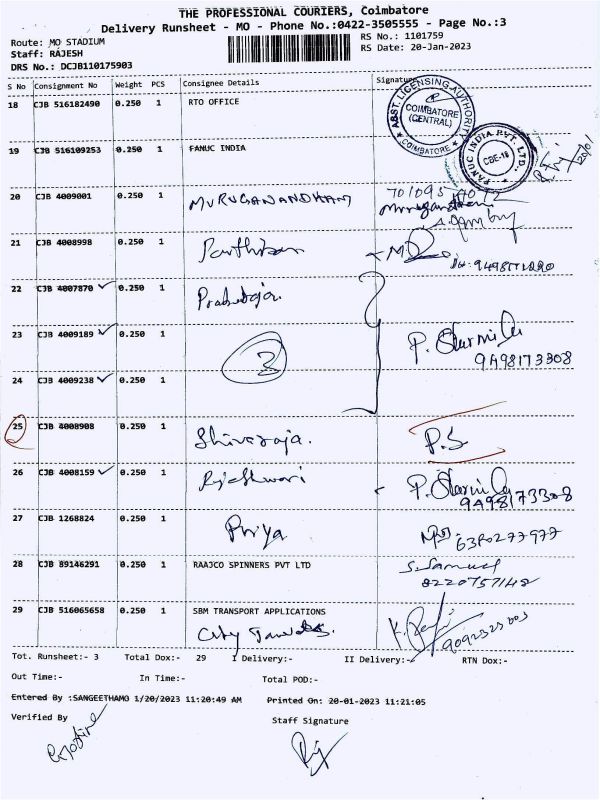 THE PROFESSIONAL COURIERS, Coimbatore
Delivery Runsheet - MO - Phone No.:0422-3505555 - Page No.:3
Route: MO STADIUM
RS No.: 1101759
Staff: RAJESH
RS Date: 20-Jan-2023
DRS No.: DCJB110175903
S No Consignment No Weight PCS Consignee Details Signature
18 CJB 516182490 0.250 1 RTO OFFICE
ABST. LICENSING AUTHORITY
COIMBATORE
(CENTRAL)
COIMBATORE
19 CJB 516109253 0.250 1 FANUC INDIA
FANUC INDIA PVT. LTD.,
CBE-18
20/01
20 CJB 4009001 0.250 1 MURUGANANDHAM
21 CJB 4008998 0.250 1 Parthiban
22 CJB 4007870 0.250 1
23 CJB 4009189 0.250 1 3 P. Sharmila
9498173308
24 CJB 4009238 0.250 1
25 CJB 4008908 0.250 1 Shivaraja. P.S
26 CJB 4008159 0.250 1 Rajeshwari P. Sharmila
9498173308
27 CJB 1268824 0.250 1 Priya
28 CJB 89146291 0.250 1 RAAJCO SPINNERS PVT LTD S. Samuel
8220757148
29 CJB 516065658 0.250 1 SBM TRANSPORT APPLICATIONS
City
Tot. Runsheet:- 3 Total Dox:- 29 I Delivery:- II Delivery:- RTN Dox:-
Out Time:- In Time:- Total POD:-
Entered By :SANGEETHAMO 1/20/2023 11:20:49 AM Printed On: 20-01-2023 11:21:05
Verified By Staff Signature